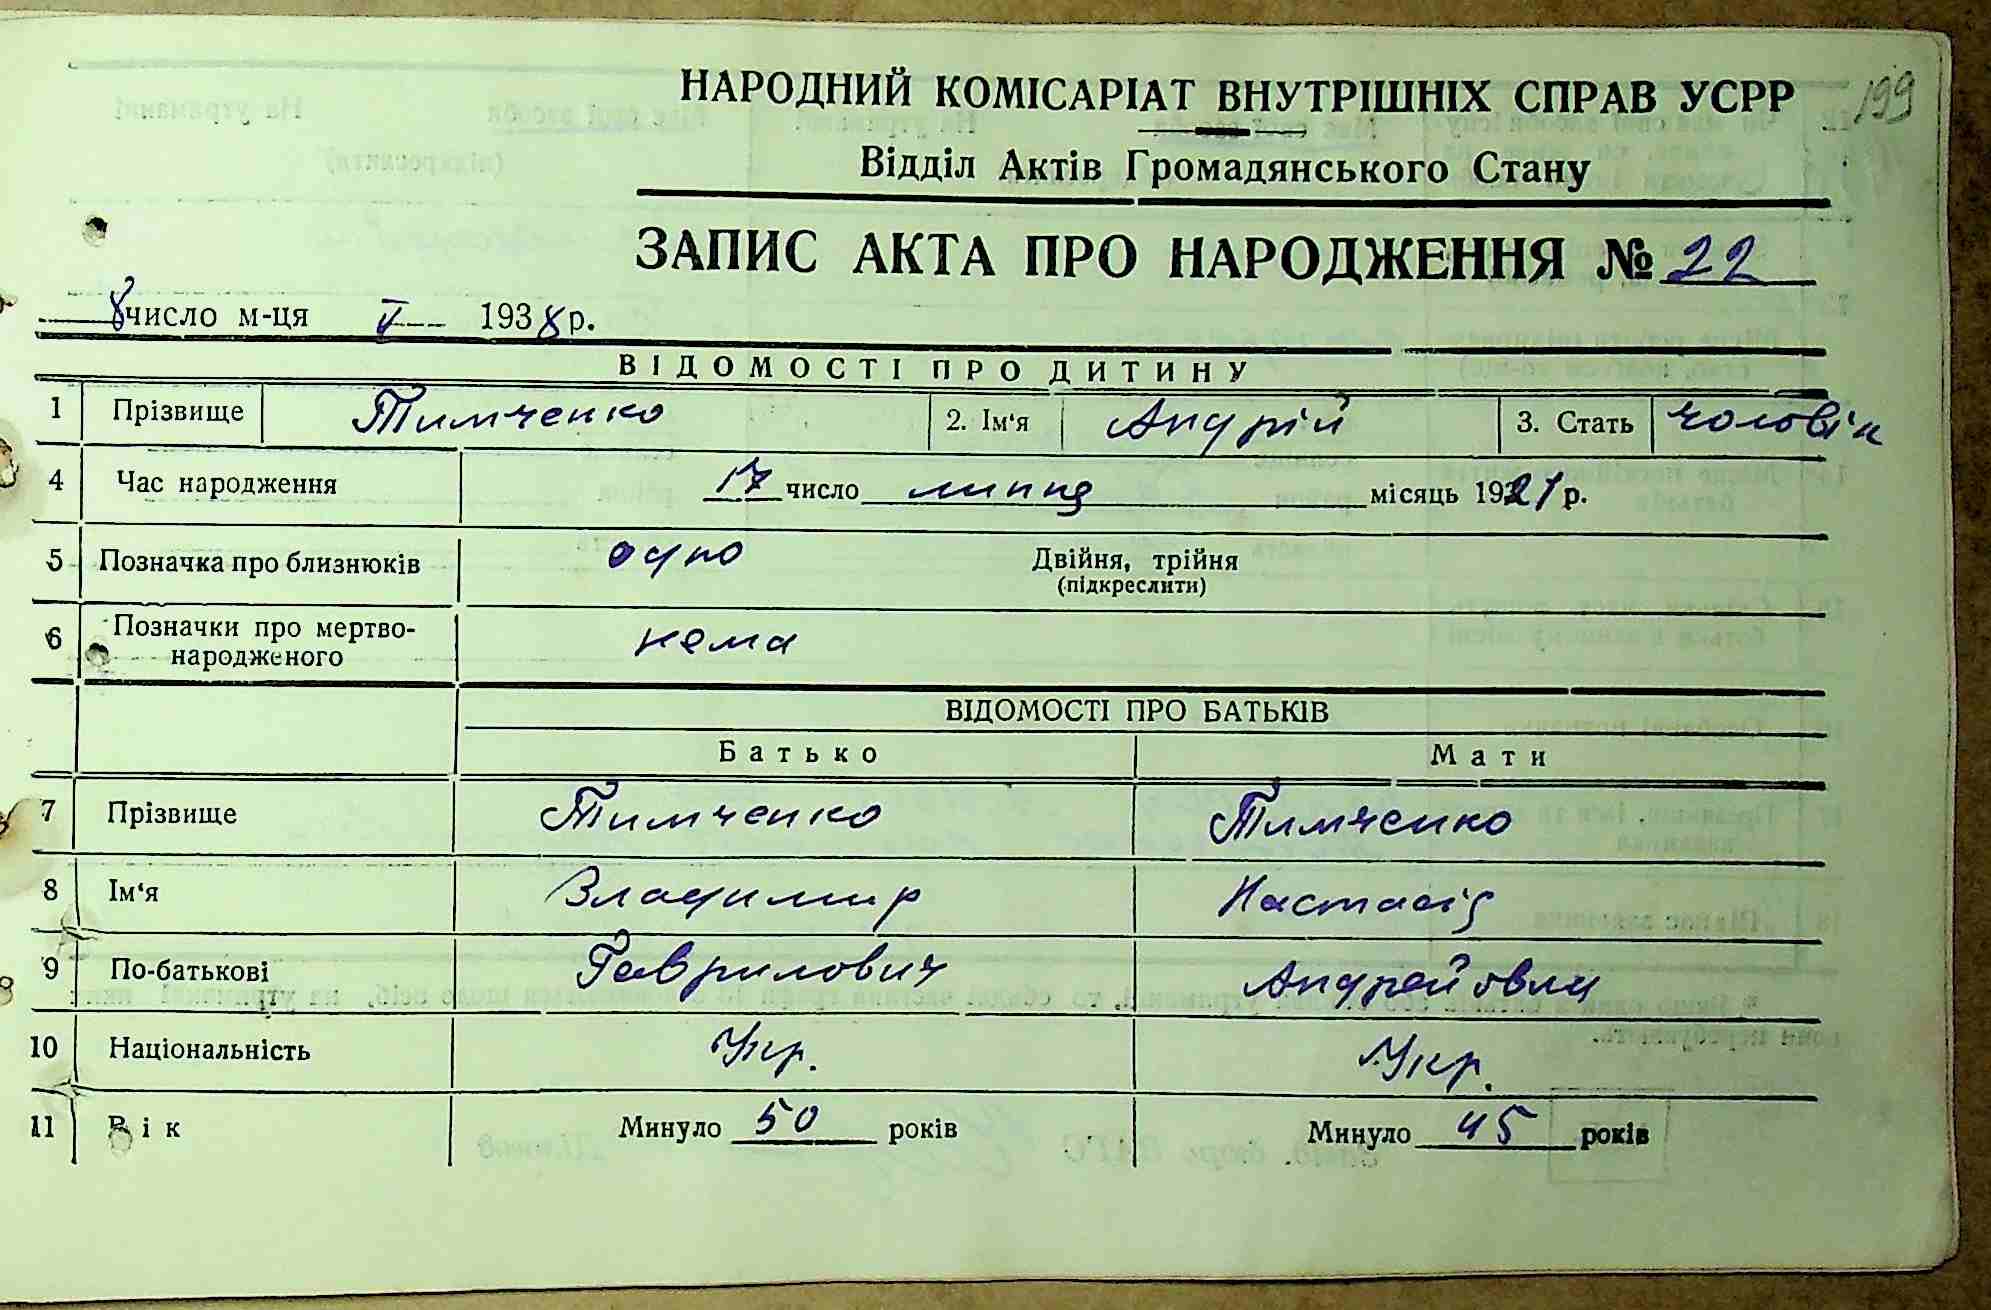 199
НАРОДНИЙ КОМІСАРІАТ ВНУТРІШНІХ СПРАВ УСРР
Відділ Актів Громадянського Стану
ЗАПИС АКТА ПРО НАРОДЖЕННЯ № 22
8 число м-ця V 1938 р.
ВІДОМОСТІ ПРО ДИТИНУ
1 Прізвище Тимченко 2. Ім'я Андрій 3. Стать чоловік
4 Час народження 17 число липня місяць 1921 р.
5 Позначка про близнюків одно Двійня, трійня
(підкреслити)
6 Позначки про мертво- нема
народженого
ВІДОМОСТІ ПРО БАТЬКІВ
Батько Мати
7 Прізвище Тимченко Тимченко
8 Ім'я Владимир Настасія
9 По-батькові Гаврилович Андрейовна
10 Національність Укр. Укр.
11 Вік Минуло 50 років Минуло 45 років